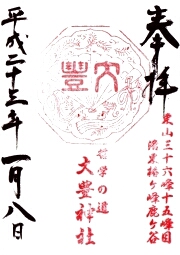 奉拝
東山三十六峰十五峰目
椿ヶ峰鹿ヶ谷
大豊
哲学の道
大豊神社
平成二十三年一月八日